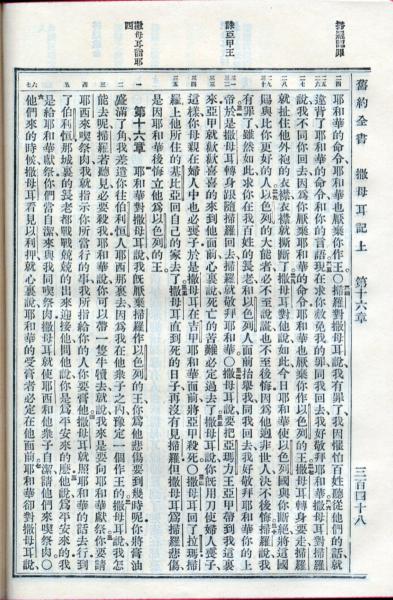 舊約全書　撒母耳記上　第十六章　三百四十八
掃羅認罪
誅亞甲王
撒母耳詣耶
四
耶和華的命令耶和華也厭棄你作王○掃羅對撒母耳說我有罪了我因懼怕百姓聽從他們的話就
違背了耶和華的命令和你的言語現在求你赦免我的罪同我回去我好敬拜耶和華撒母耳對掃羅
說我不同你回去因爲你厭棄耶和華的命令耶和華也厭棄你作以色列的王撒母耳轉身要走掃羅
就扯住他外袍的衣襟衣襟就撕斷了撒母耳對他說如此今日耶和華使以色列國與你斷絕將這國
賜與比你更好的人以色列的大能者必不至說謊也不至後悔因爲他迥非世人決不後悔掃羅說我
有罪了雖然如此求你在我百姓的長老和以色列人面前抬舉我同我回去我好敬拜耶和華你的上
帝於是撒母耳轉身跟隨掃羅回去掃羅就敬拜耶和華○撒母耳說要把亞瑪力王亞甲帶到我這裏
來亞甲就歡歡喜喜的來到他面前心裏說死亡的苦難必定過去了撒母耳說你旣用刀使婦人喪子
這樣你母親在婦人中也必喪子於是撒母耳在吉甲耶和華面前將亞甲殺死○撒母耳回了拉瑪掃
羅上他所住的基比亞回自己的家去了撒母耳直到死的日子再沒有見掃羅但撒母耳爲掃羅悲傷
是因耶和華後悔立他爲以色列的王
第十六章　耶和華對撒母耳說我旣厭棄掃羅作以色列的王你爲他悲傷要到幾時呢你將膏油
盛滿了角我差遣你往伯利恒人耶西那裏去因爲我在他衆子之內豫定一個作王的撒母耳說我怎
能去呢掃羅若聽見必要殺我耶和華說你可以帶一隻牛犢去就說我來是要向耶和華獻祭你要請
耶西來喫祭肉我就指示你所當行的事我所指給你的人你要膏他撒母耳就照耶和華的話去行到
了伯利恒那城裏的長老都戰戰兢兢的出來迎接他問他說你是爲平安來的麽他說爲平安來的我
是給耶和華獻祭你們當自潔來與我同喫祭肉撒母耳就使耶西和他衆子自潔請他們來喫祭肉○
他們來的時候撒母耳看見以利押就心裏說耶和華的受膏者必定在他面前耶和華卻對撒母耳說